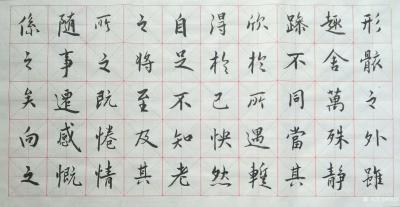 形骸之外雖
趣舍萬殊静
躁不同當其
欣於所遇暫
得於己快然
自足不知老
之將至及其
所之既惓情
随事遷感慨
係之矣向之